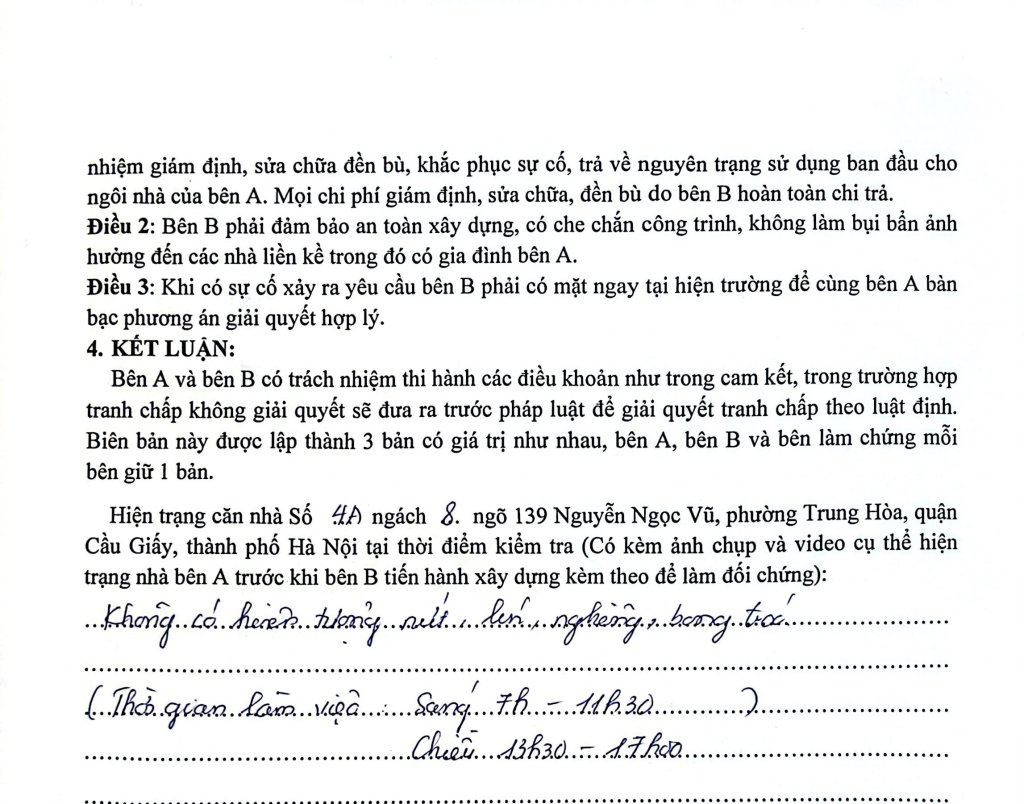 nhiệm giám định, sửa chữa đền bù, khắc phục sự cố, trả về nguyên trạng sử dụng ban đầu cho
ngôi nhà của bên A. Mọi chi phí giám định, sửa chữa, đền bù do bên B hoàn toàn chi trả.
Điều 2: Bên B phải đảm bảo an toàn xây dựng, có che chắn công trình, không làm bụi bẩn ảnh
hưởng đến các nhà liền kề trong đó có gia đình bên A.
Điều 3: Khi có sự cố xảy ra yêu cầu bên B phải có mặt ngay tại hiện trường để cùng bên A bàn
bạc phương án giải quyết hợp lý.
4. KẾT LUẬN:
Bên A và bên B có trách nhiệm thi hành các điều khoản như trong cam kết, trong trường hợp
tranh chấp không giải quyết sẽ đưa ra trước pháp luật để giải quyết tranh chấp theo luật định.
Biên bản này được lập thành 3 bản có giá trị như nhau, bên A, bên B và bên làm chứng mỗi
bên giữ 1 bản.
Hiện trạng căn nhà Số 4A ngách 8. ngõ 139 Nguyễn Ngọc Vũ, phường Trung Hòa, quận
Cầu Giấy, thành phố Hà Nội tại thời điểm kiểm tra (Có kèm ảnh chụp và video cụ thể hiện
trạng nhà bên A trước khi bên B tiến hành xây dựng kèm theo để làm đối chứng):
Không có hiện tượng nứt, lún, nghiêng, bong tróc
(Thời gian làm việc : Sáng 7h - 11h30 )
Chiều 13h30 - 17h00